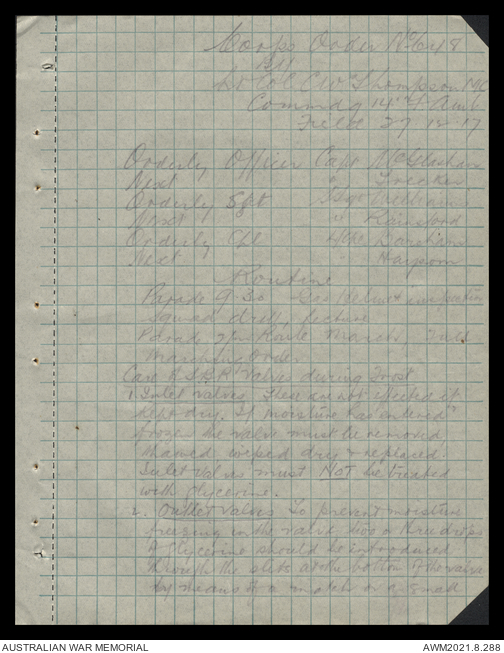 Corps Order No 648
By
Lt Col C W Thompson MC
Commdg 14th F Amb
Field 27 12 17
Orderly Officer Capt
Next "
Orderly Sgt
Next " Rainsford
Orderly Cpl
Next " Haysom
Routine
Parade 9.30 Gas Helmet inspection
squad drill, lecture
Parade 2 pm Route March, Full
Marching Order
Care of S.B.R. Valves during Frost
1. Inlet valves. These are not affected if
kept dry. If moisture has entered &
frozen the valve must be removed
thawed wiped dry & replaced
Inlet valves must NOT be treated
with Glycerine.
2. Outlet valves To prevent moisture
freezing in the valve, two or three drops
of Glycerine should be introduced
through the slits at the bottom of the valve
by means of a match or a small
AUSTRALIAN WAR MEMORIAL
AWM2021.8.288